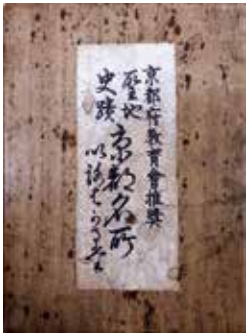 京都府教育會推奨
聖地
史蹟
京都名所